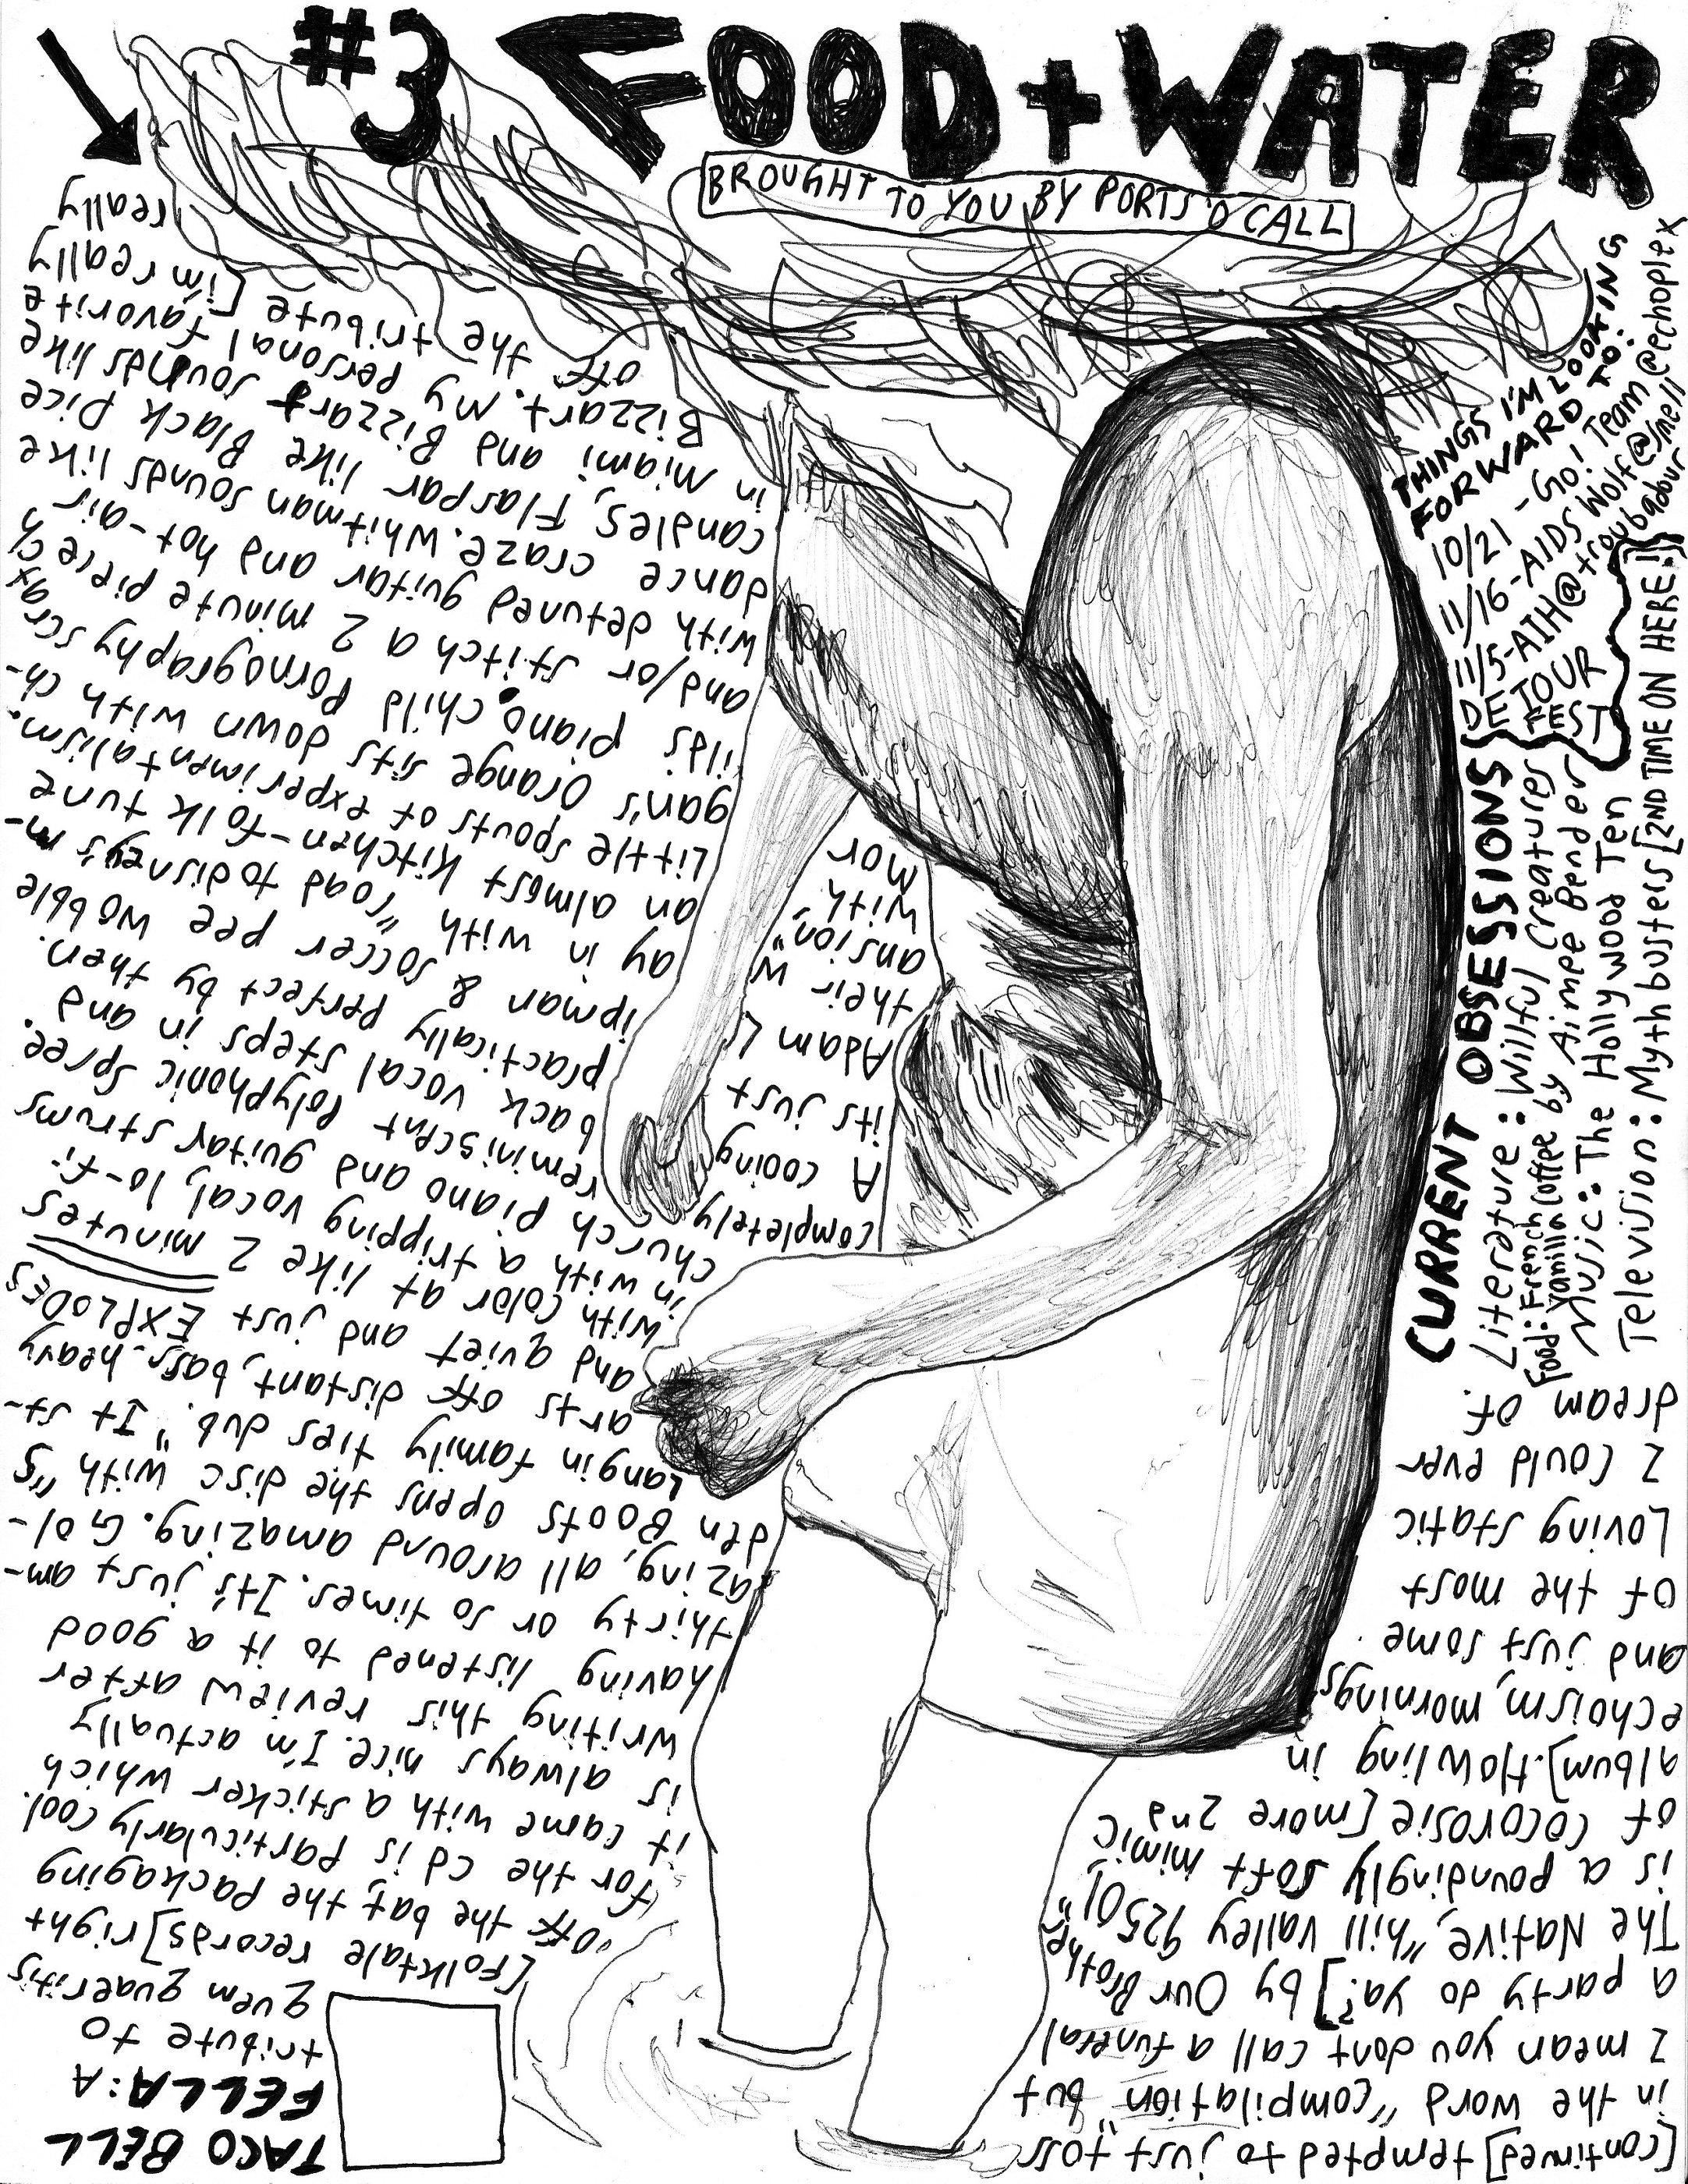 #3 FOOD + WATER
BROUGHT TO YOU BY PORTS O CALL
TACO BELL
FELLA: A
tribute to
quem quaeritis
[Folktale records] right
off the bat, the packaging
for the cd is particularly cool.
it came with a sticker which
is always nice. I'm actually
writing this review after
having listened to it a good
thirty or so times. It's just am-
azing, all around amazing. Gol-
den Boots opens the disc with "g
Langin family ties dub." It st-
arts off distant, bass-heavy
and quiet and just EXPLODES
with color at like 2 minutes
in with a tripping vocal, lo-fi.
church piano and guitar strums
completely reminiscent Polyphonic Spree.
A cooing back vocal steps in and
its just practically perfect by then.
Adam Lipman & soccer pee wobble
their way in with "road to disney's m-
ansion" an almost kitchen-folk tune
with Little spouts of experimentalism.
Morgan's Orange sits down with ch-
ilds piano, child pornography
and/or stitch a 2 minute piece
with detuned guitar and hot-air
dance craze. Whitman sounds like
candles, Flaspar like Black Dice
in miami and Bizzart sounds like
Bizzart. My personal favorite
off the tribute [i'm really
really
[continued] tempted to just toss
in the word "compilation" but
I mean you dont call a funeral
a party do ya?] by Our Brother
The Native, "hill valley 92501"
is a poundingly soft mimic
of cocorosie [more 2nd
album]. Howling in
echoism, mornings
and just some
of the most
Loving static
I could ever
dream of.
CURRENT OBSESSIONS
Literature: Willful Creatures
by Aimee Bender
Food: French Vanilla Coffee
Music: The Hollywood Ten
Television: Mythbusters [2ND TIME ON HERE!!]
THINGS I'M LOOKING
FORWARD TO:
10/21 - Go! Team @ echoplex
11/16 - AIDS Wolf @ Smell
11/5 - AIH @ troubadour
DETOUR
FEST